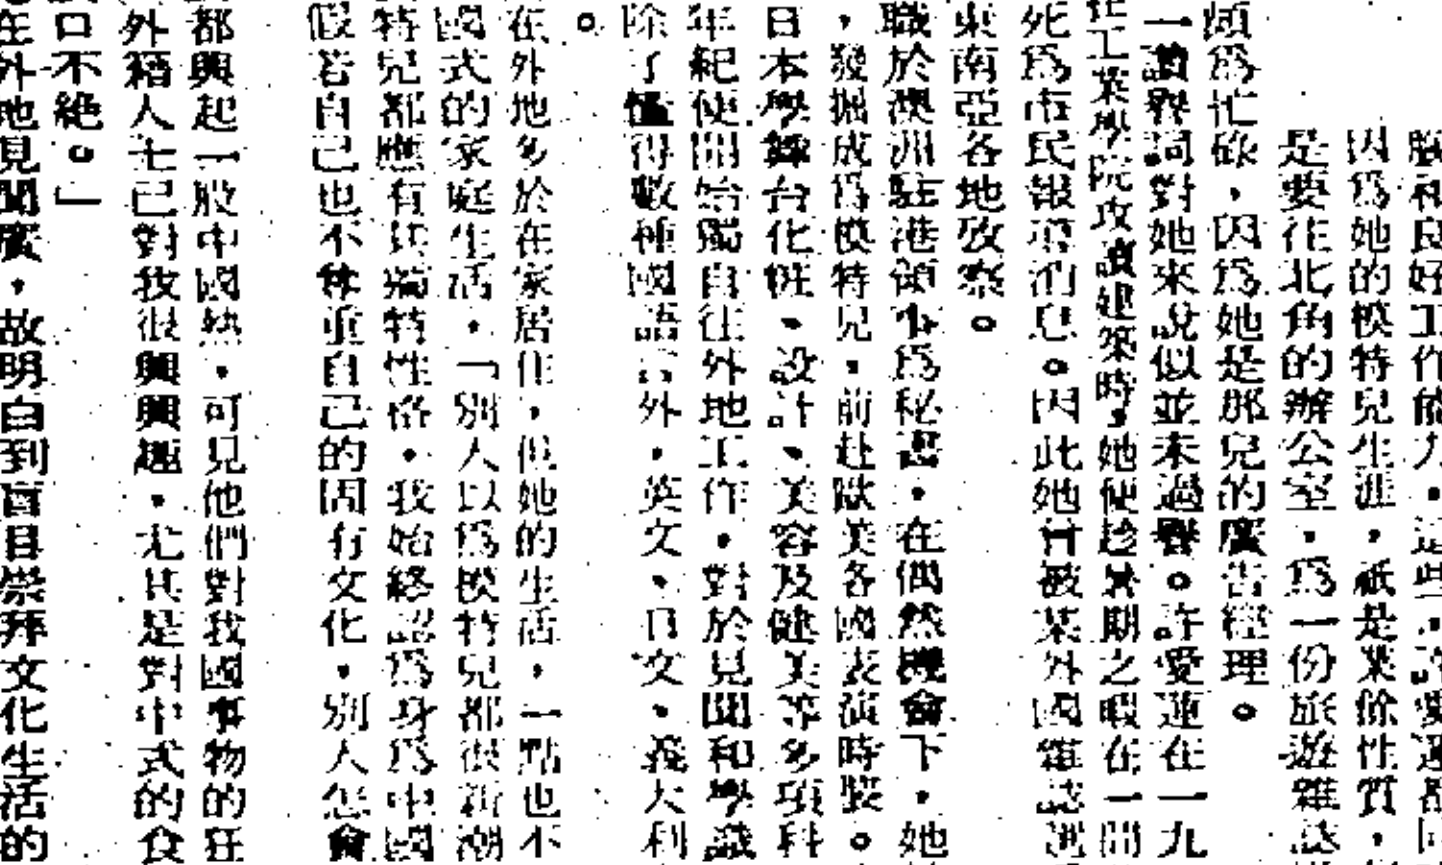 和良好工作能力，這些，許愛蓮都
因爲她的模特兒生涯，祇是業餘性質，
是要往北角的辦公室，爲一份旅遊雜誌
頗爲忙碌，因爲她是那兒的廣告經理。
一讚譽詞對她來說似並未過譽。許愛蓮在一九
工業學院攻讀建築時，她便趁暑期之暇在一間
死爲市民報導消息。因此她曾被某外國雜誌選
東南亞各地攷察。
職於澳洲駐港領事爲秘書，在偶然機會下，她
，發掘成爲模特兒，前赴歐美各國表演時裝。
日本學舞台化粧、設計、美容及健美等多項科
年紀便開始獨自往外地工作，對於見聞和學識
除了懂得數種國語言外，英文、日文、義大利
。
在外地多於在家居住，但她的生活，一點也不
國式的家庭生活，「別人以爲模特兒都很新潮
特兒都應有其獨特性格，我始終認爲身爲中國
假若自己也不尊重自己的固有文化，別人怎會
都興起一股中國熱，可見他們對我國事物的狂
外籍人士已對我很興興趣，尤其是對中式的食
口不絕。」
在外地見聞廣，故明白到盲目崇拜文化生活的